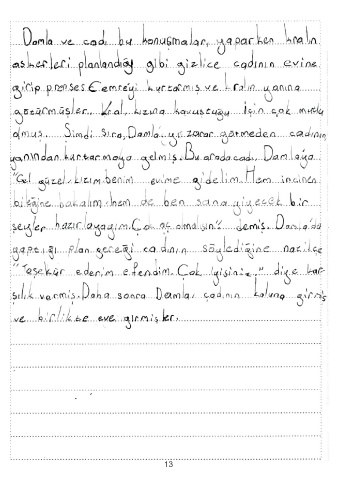 Damla ve cadı bu konuşmaları yaparken kralın
askerleri planlandığı gibi gizlice cadının evine
girip prenses Cemreyi kurtarmış ve kralın yanına
götürmüşler. Kral, kızına kavuştuğu için çok mutlu
olmuş. Şimdi sıra, Damla'yı zarar görmeden cadının
yanından kurtarmaya gelmiş. Bu arada cadı, Damlaya
"Gel güzel kızım benim evime gidelim. Hem incinen
bileğine bakalım hem de ben sana yiyecek bir
şeyler hazırlayayım. Çok aç olmalısın." demiş. Damla'da
yaptığı plan gereği cadının söylediğine nazikçe
"Teşekkür ederim efendim. Çok iyisiniz." diye kar-
şılık vermiş. Daha sonra Damla, cadının koluna girmiş
ve birlikte eve girmişler.
13